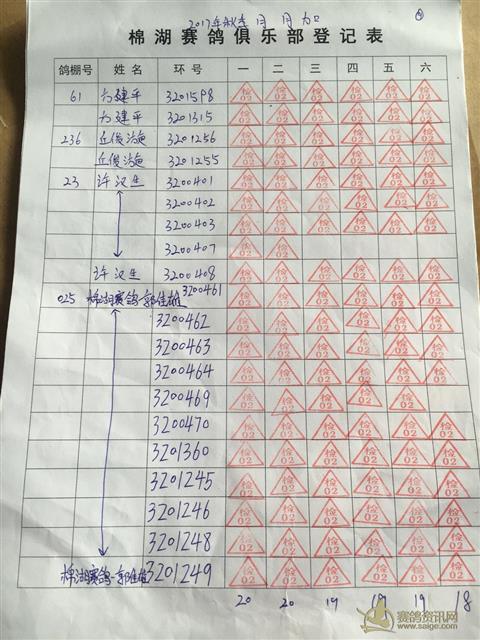 2017年秋季
棉湖赛鸽俱乐部登记表
鸽棚号 姓名 环号 一 二 三 四 五 六
61 3201598 检02 检02 检02 检02 检02 检02
建平 3201315 检02 检02 检02 检02 检02 检02
236 丘俊 3201256 检02 检02 检02 检02 检02 检02
丘俊 3201255 检02 检02 检02 检02 检02 检02
23 许汉生 3200401 检02 检02 检02 检02 检02 检02
3200402 检02 检02 检02 检02 检02 检02
3200403 检02 检02 检02 检02 检02 检02
3200407 检02 检02
许汉生 3200408 检02 检02 检02 检02 检02 检02
025 棉湖赛鸽 3200461 检02 检02 检02 检02 检02 检02
3200462 检02 检02 检02 检02 检02 检02
3200463 检02 检02 检02 检02 检02 检02
3200464 检02 检02 检02 检02 检02 检02
3200469 检02 检02 检02 检02 检02
3200470 检02 检02 检02 检02 检02 检02
3201360 检02 检02 检02 检02 检02 检02
3201245 检02 检02 检02 检02 检02 检02
3201246 检02 检02 检02 检02 检02 检02
3201248 检02 检02 检02 检02 检02 检02
棉湖赛鸽 3201249 检02 检02 检02 检02 检02 检02
20 20 19 19 19 18
赛鸽资讯网
www.saige.com